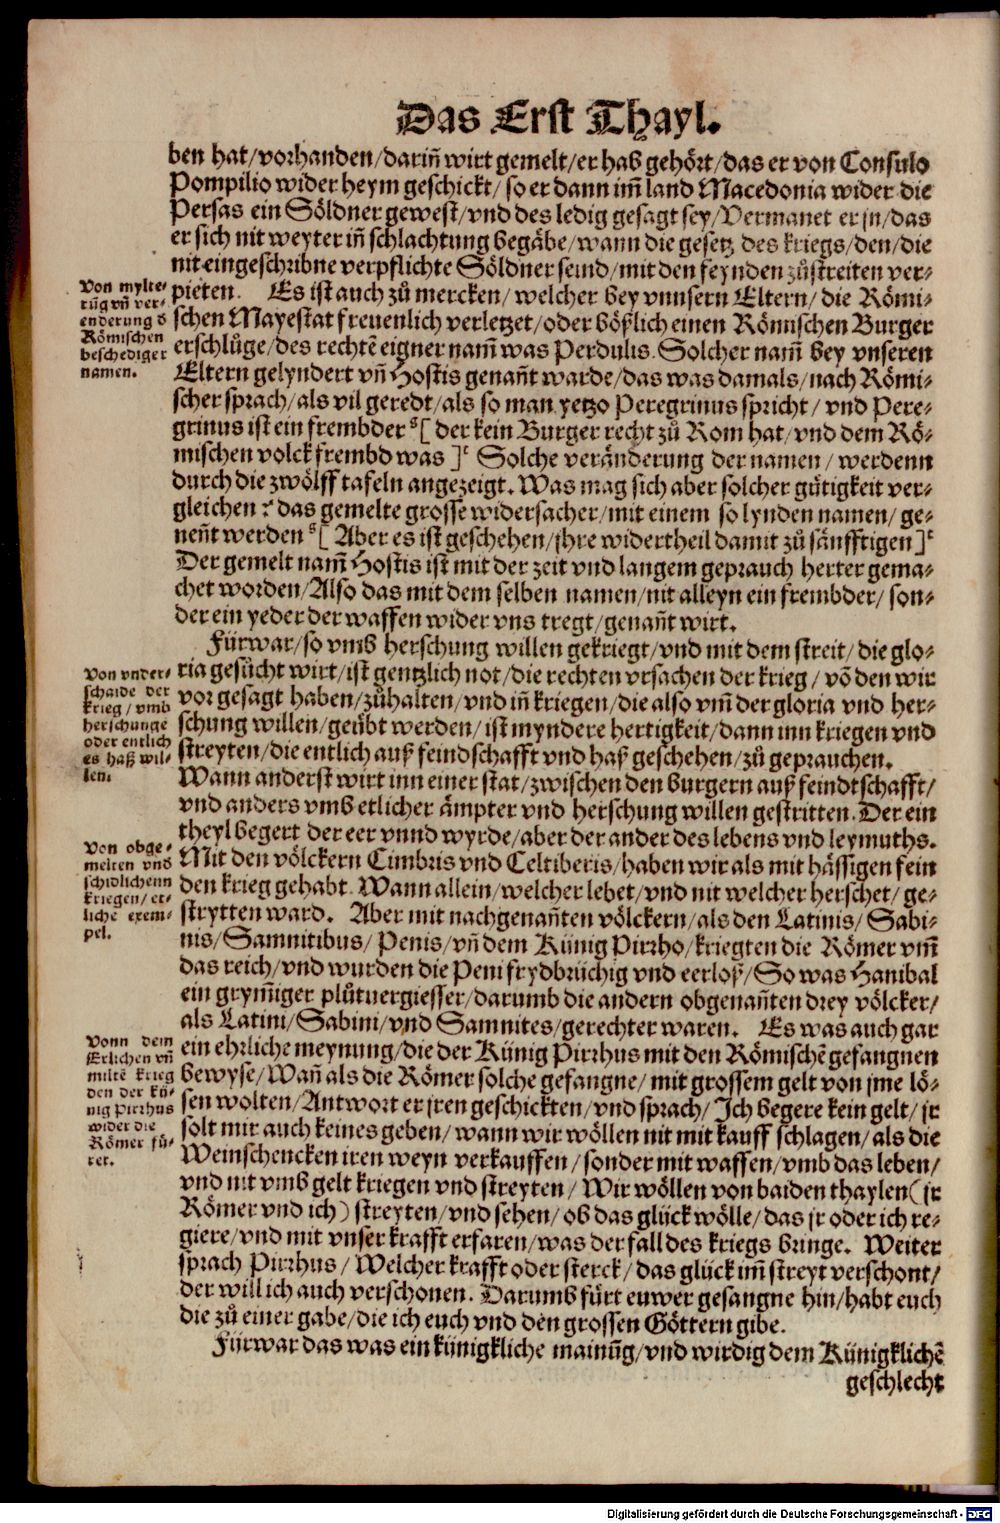 Das Erst Thayl.
ben hat/vorhanden/dariñ wirt gemelt/er hab gehört/das er von Consulo
Pompilio wider heym geschickt/so er dann im̃ land Macedonia wider die
Persas ein Söldner gewest/vnd des ledig gesagt sey/Vermanet er jn/das
er sich nit weyter iñ schlachtung begäbe/wann die gesetz des kriegs/den/die
nit eingeschribne verpflichte Söldner seind/mit den feynden zůstreiten ver-
pieten. Es ist auch zů mercken/welcher bey vnnsern Eltern/die Römi-
schen Mayestat freuenlich verletzet/oder bößlich einen Römischen Burger
erschlůge/des rechtē eigner nam̃ was Perdulis. Solcher nam̃ bey vnseren
Eltern gelyndert vñ Hostis genañt warde/das was damals/nach Römi-
scher sprach/als vil geredt/als so man yetzo Peregrinus spricht/vnd Pere-
grinus ist ein frembder ˢ[ der kein Burger recht zů Rom hat/vnd dem Rö-
mischen volck frembd was ]ᶜ Solche veränderung der namen/werdenn
durch die zwölff tafeln angezeigt. Was mag sich aber solcher gütigkeit ver-
gleichen? das gemelte grosse widersacher/mit einem so lynden namen/ge-
neñt werden ˢ[ Aber es ist geschehen/jhre widertheil damit zů sänfftigen ]ᶜ
Der gemelt nam̃ Hostis ist mit der zeit vnd langem geprauch herter gema-
chet worden/Also das mit dem selben namen/nit alleyn ein frembder/son-
der ein yeder der waffen wider vns tregt/genañt wirt.
Von mylte-
rūg vñ ver-
enderung d
Römischen
beschediger
namen.
Fürwar/so vmb herschung willen gekriegt/vnd mit dem streit/die glo-
ria gesůcht wirt/ist gentzlich not/die rechten vrsachen der krieg/vō den wir
vor gesagt haben/zůhalten/vnd iñ kriegen/die also vm̃ der gloria vnd her-
schung willen/geübt werden/ist myndere hertigkeit/dann inn kriegen vnd
streyten/die entlich auß feindschafft vnd haß geschehen/zů geprauchen.
Wann anderst wirt inn einer stat/zwischen den burgern auß feindtschafft/
vnd anders vmb etlicher ämpter vnd herschung willen gestritten. Der ein
theyl begert der eer vnnd wyrde/aber der ander des lebens vnd leymuths.
Von vnder-
schaide der
krieg/vmb
herschunge
oder entlich
es haß wil-
len.
Mit den völckern Cimbris vnd Celtiberis/haben wir als mit hässigen fein
den krieg gehabt. Wann allein/welcher lebet/vnd nit welcher herschet/ge-
strytten ward. Aber mit nachgenañten völckern/als den Latinis/Sabi-
nis/Samnitibus/Penis/vñ dem Künig Pirrho/kriegten die Römer vm̃
das reich/vnd wurden die Peni frydbrüchig vnd eerloß/So was Hanibal
ein grym̃iger plůtuergiesser/darumb die andern obgenañten drey völcker/
als Latini/Sabini/vnd Samnites/gerechter waren. Es was auch gar
Von obge-
melten vnd
schidlichenn
kriegen/et-
liche exem-
pel.
ein ehrliche meynung/die der Künig Pirrhus mit den Römischē gefangnen
bewyse/Wañ als die Römer solche gefangne/mit grossem gelt von jme lö-
sen wolten/Antwort er jren geschickten/vnd sprach/Ich begere kein gelt/jr
solt mir auch keines geben/wann wir wöllen nit mit kauff schlagen/als die
Weinschencken iren weyn verkauffen/sonder mit waffen/vmb das leben/
vnd nit vmb gelt kriegen vnd streyten/Wir wöllen von baiden thaylen(jr
Römer vnd ich) streyten/vnd sehen/ob das glück wölle/das jr oder ich re-
giere/vnd mit vnser krafft erfaren/was der fall des kriegs bringe. Weiter
sprach Pirrhus/Welcher krafft oder sterck/das glück im̃ streyt verschont/
der will ich auch verschonen. Darumb fürt euwer gefangne hin/habt euch
die zů einer gabe/die ich euch vnd den grossen Göttern gibe.
Vonn dem
Erlichen vñ
miltē krieg
den der kü-
nig Pirrhus
wider die
Römer fü-
ret.
Fürwar das was ein künigkliche mainūg/vnd wirdig dem Künigklichē
geschlecht
Digitalisierung gefördert durch die Deutsche Forschungsgemeinschaft - DFG